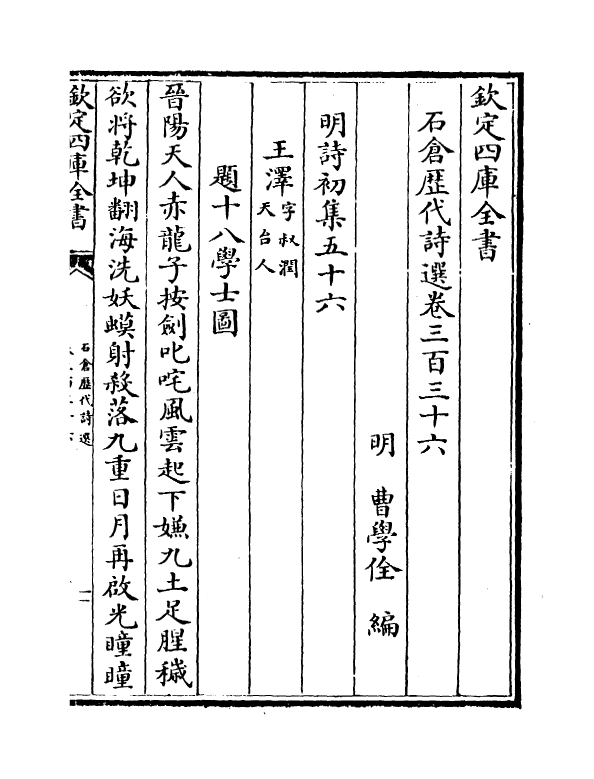 欽定四庫全書
石倉歷代詩選卷三百三十六
明 曹學佺 編
明詩初集五十六
王澤字叔潤
天台人
題十八學士圖
晉陽天人赤龍子按劍叱咤風雲起下嫌九土足腥穢
欲將乾坤翻海洗妖蟆射殺落九重日月再啟光瞳瞳
欽定四庫全書
石倉歷代詩選
一